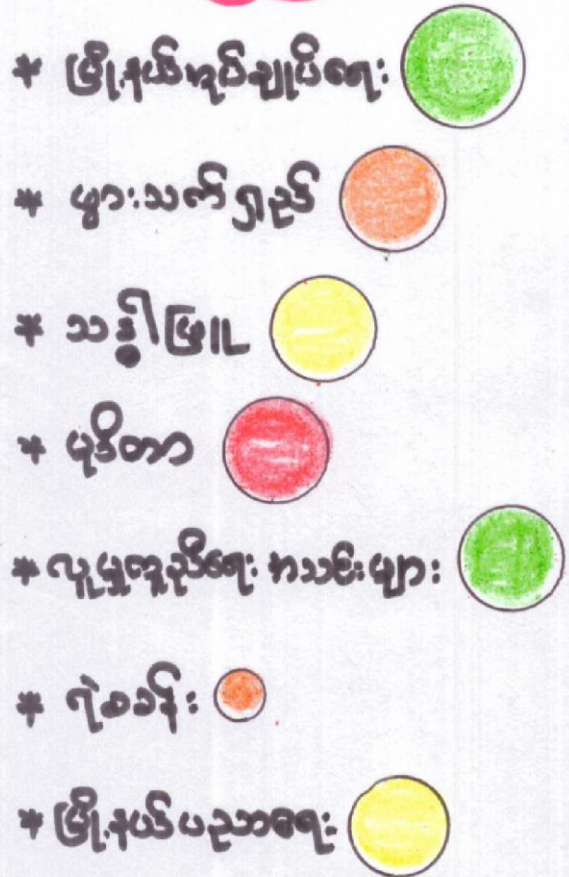 * မြို့နယ်အုပ်ချုပ်ရေး
* ဖွားသက်ရှည်
* သဒ္ဓါဖြူ
* မုဒိတာ
* လူမှုကူညီရေး အသင်းများ
* ရဲစခန်း
* မြို့နယ်ပညာရေး